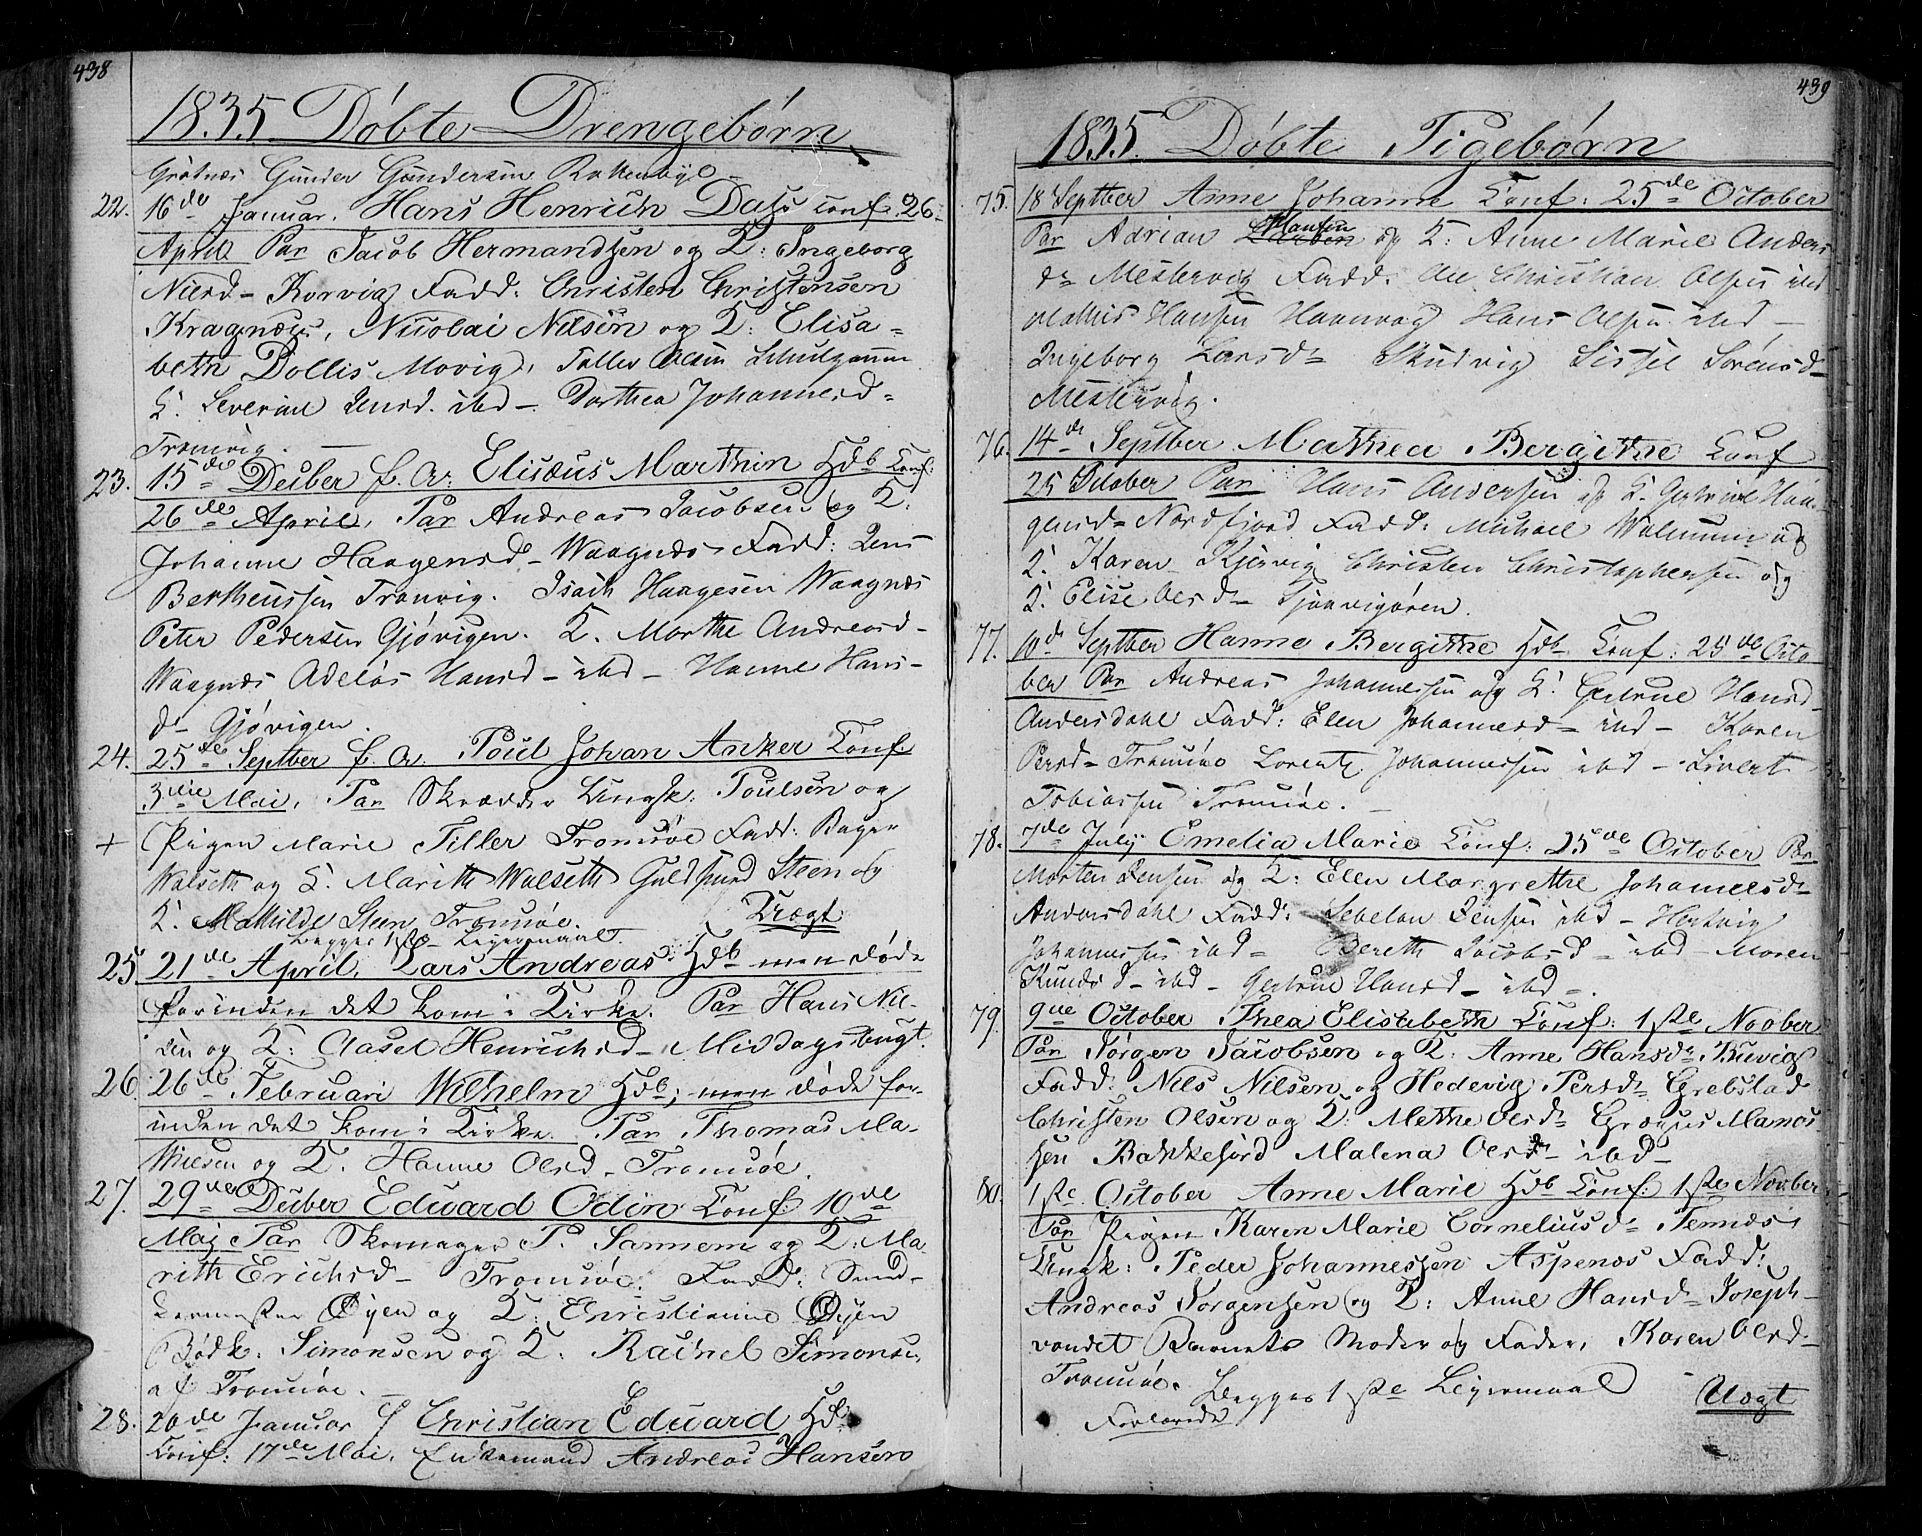 438
1835 Döbte Drengebörn
Grötnæs Gunder Gundersen
22. 16de Januar. Hans Henrich Dass Conf. 26
April Par Jacob Hermandsen og K: Ingeborg
Nilsd - Korvig Fadd: Christen Christensen
Kragnæs, Nicolai Nilsen og K: Elisa=
beth Dollis Movig, Olsen
K. Severine Jensd. ibd - Dorthea Johannesd=
Tromvig. -
23. 15de Decber f. A. Elisæus Marthin Hdb Conf:
26de April, Par Andreas Jacobsen og K:
Johanne Haagensd - Waagnæs Fadd: Jens
Bertheussen Tromvig. Isach Haagesen Waagnæs
Peter Pedersen Gjövigen. K. Marthe Andreasd -
Waagnæs Adelös Hansd - ibd - Hanne Hans-
d - Gjövigen.
24. 25de Septber f. A. Poul Johan Anker Conf.
3die Mai, Par Skrædder Ungk: Poulsen og
+ Pigen Marie Tiller Tromsöe Fadd: Bager
Walseth og K. Marith Walseth Guldsmed Steen og
K. Mathilde Steen Tromsöe. Uægt
Begges 1ste Leiermaal.
25 21de April, Lars Andreas Hdb men döde
forinden det kom i Kirke. Par Hans Nil-
sen og K: Aasel Henrichsd - Middagsbugt.
26. 26de Februari Wilhelm Hdb; men döde for-
inden det kom i Kirke. Par Thomas Ma-
thiesen og K. Hanne Olsd - Tromsöe.
27. 29de Decber Eduard Odin Conf: 10de
Maj Par Skomager P. Sannem og K: Ma-
rith Erichsd - Tromsöe. Fadd:
Öyen og K: Christianne Öyen
Bödk. Simonsen og K. Rachel Simonsen
af Tromsöe. -
28. 20de Januar Christian Eduard Hdb
Conf: 17de Mai. Enkemand Andreas Hansen
439
1835. Döbte Pigebörn
75. 18 Septber Anne Johanne Conf: 25de October
Par Adrian Hansen og K: Anne Marie Anders
d= Mestervig Fadd: Ole Christian Olsen ibd
Mathis Hansen Hans Olsen ibd -
Ingeborg Larsd= Skudvig Sissel Sörensd -
Mestervig.
76. 14de Septber Marthea Bergithe Conf
25 October Par Hans Andersen og K. Gertrue Haa-
gensd= Nordfjord Fadd: Michael Walnum og
K. Karen Kjersvig Christen Christophersen og
K. Elise Olsd -
77. 10de Septber Hanne Bergithe Hdb Conf: 25de Octo-
ber Par Andreas Johannessen og K: Gertrue Hansd -
Andersdahl Fadd: Elen Johannesd= ibd - Karen
Persd= Tromsöe Lorentz Johannessen ibd - Sivert
Tobiassen Tromsöe. -
78. 7de July Emelia Marie Conf: 25de October Par
Morten Jensen og K: Elen Margrethe Johannesd=
Andersdahl Fadd: Jensen ibd - Hertvig
Johannessen ibd= Bereth Jacobsd= ibd - Maren
Knudsd - ibd - Gertrue Hansd - ibd -.
79. 9nde October Thea Elisabeth Conf: 1ste Novber
Par Jörgen Jacobsen og K: Anne Hansd= Buvig
Fadd: Nils Nilsen og Hedevig Persd= Grebstad
Christen Olsen og K. Methe Olsd=
sen Bakkejord Malena Olsd - ibd -
80. 1ste October Anne Marie Hdb Conf: 1ste Novber
Par Pigen Karen Marie Corneliusd= Tennæs
Ungk: Peder Johannessen Aspenæs Fadd:
Andreas Jörgensen og K: Anne Hansd= Joseph-
vandet Barnets Moder og Fader, Karen Olsd -
Tromsöe. Begges 1ste Leiermaal Uægt
Forlovede